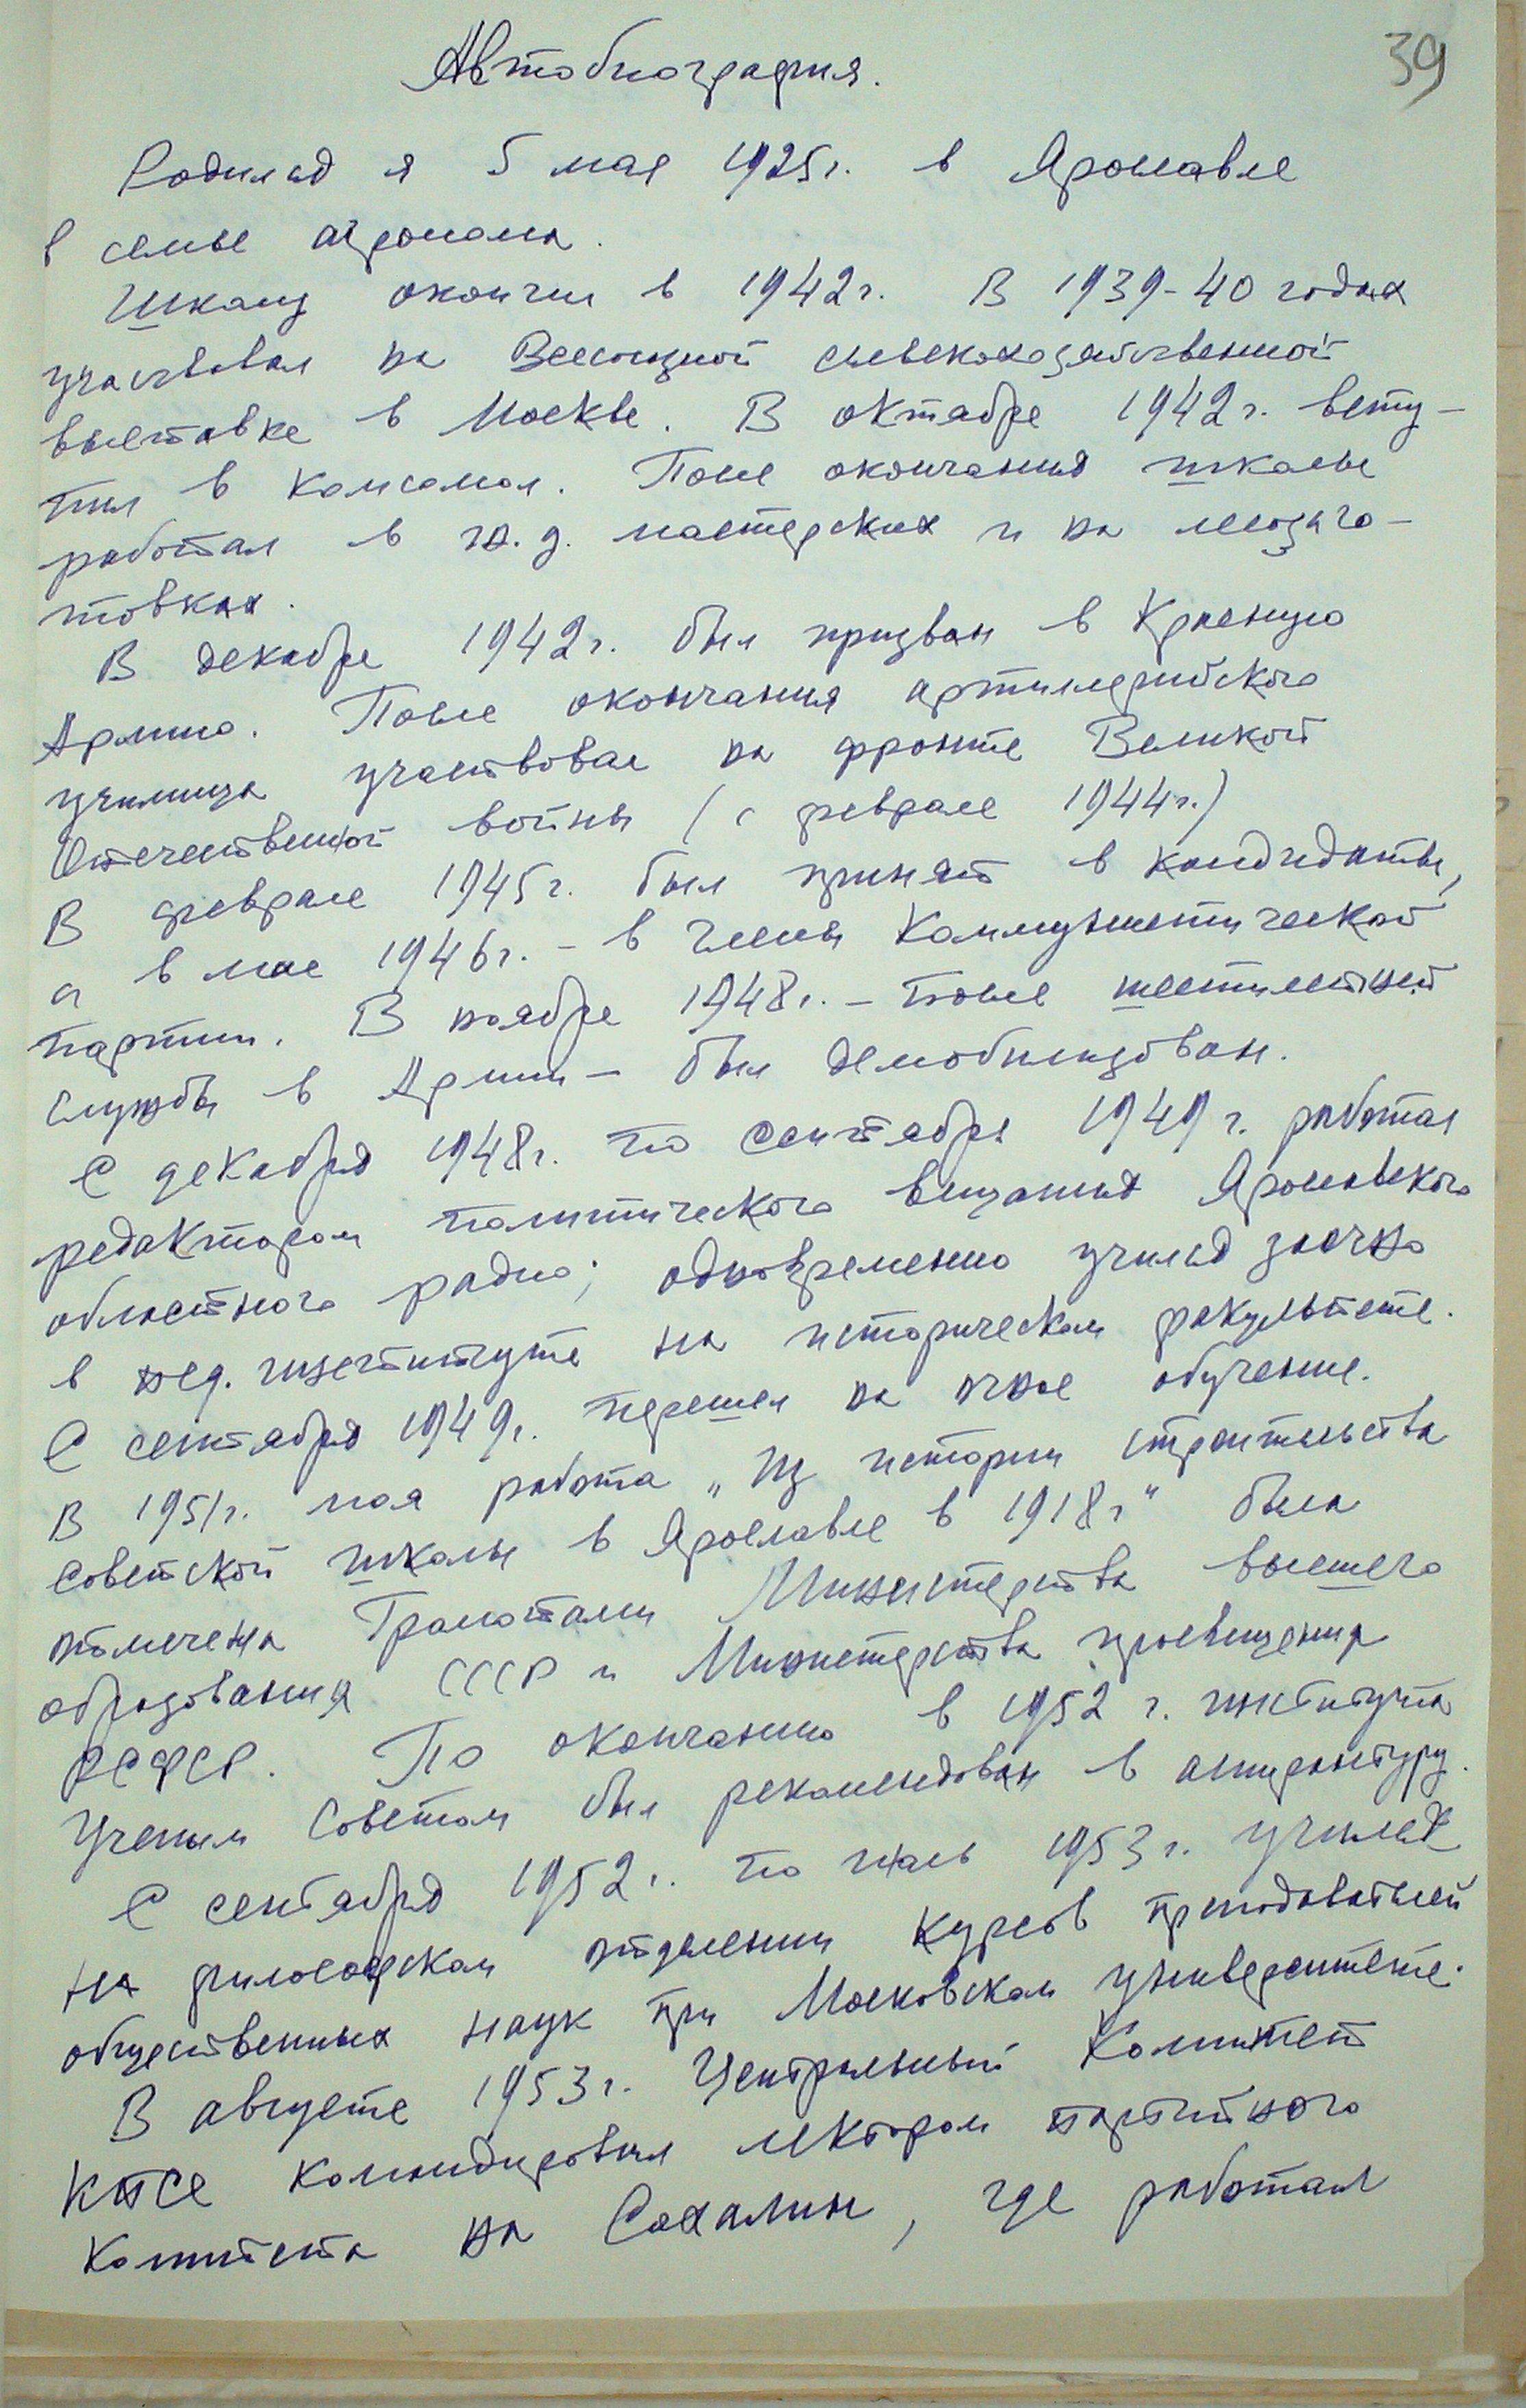 39
Автобиография.
Родился я 5 мая 1925г. в Ярославле
в семье агронома.
Школу окончил в 1942г. В 1939-40 годах
участвовал на Всесоюзной сельскохозяйственной
выставке в Москве. В октябре 1942г. всту-
пил в комсомол. После окончания школы
работал в ж.д. мастерских и на лесозаго-
товках.
В декабре 1942г. был призван в Красную
Армию. После окончания артиллерийского
училища участвовал на фронте Великой
Отечественной войны (с феврале 1944г.)
В феврале 1945г. был принят в кандидаты,
а в мае 1946г. - в члены Коммунистической
партии. В ноябре 1948г. - после шестилетней
службы в Армии - был демобилизован.
С декабря 1948г. по сентябрь 1949г. работал
редактором политического вещания Ярославского
областного радио; одновременно учился заочно
в пед. институте на историческом факультете.
С сентября 1949г. перешел на очное обучение.
В 1951г. моя работа „Из истории строительства
советской школы в Ярославле в 1918г" была
отмечена Грамотами Министерства высшего
образования СССР и Министерства просвещения
РСФСР. По окончанию в 1952 г. института
Ученым Советом был рекомендован в аспирантуру.
С сентября 1952г. по июль 1953г. учился
на философском отделении курсов преподавателей
общественных наук при Московском университете.
В августе 1953г. Центральный Комитет
КПСС командировал лектором партийного
комитета на Сахалин, где работал